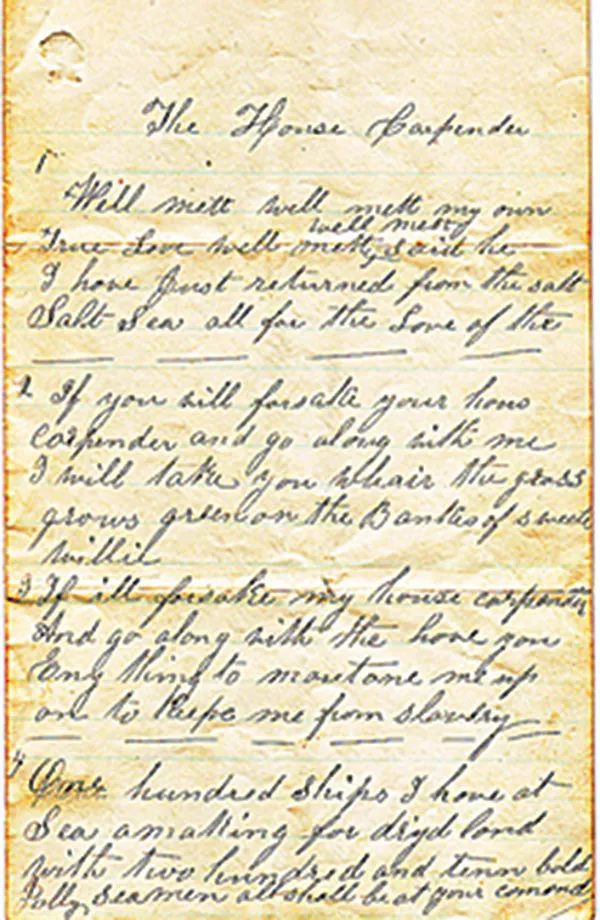 The House Carpender
1
Will mett well mett my own
well mett
True Love well mett, said he
I have Just returned from the salt
Salt Sea all for the Love of the
2 If you will forsake your hous
carpender and go along with me
I will take you whair the grass
grows green on the Banks of sweete
Willie
3 If ill forsake my house carpenter
And go along with the have you
Eny thing to mantane me up
on to Keepe me from slavery
4
One hundred ships I have at
Sea a making for dryd land
with two hundred and tenn bold
Jolly seamen all shall be at your comand